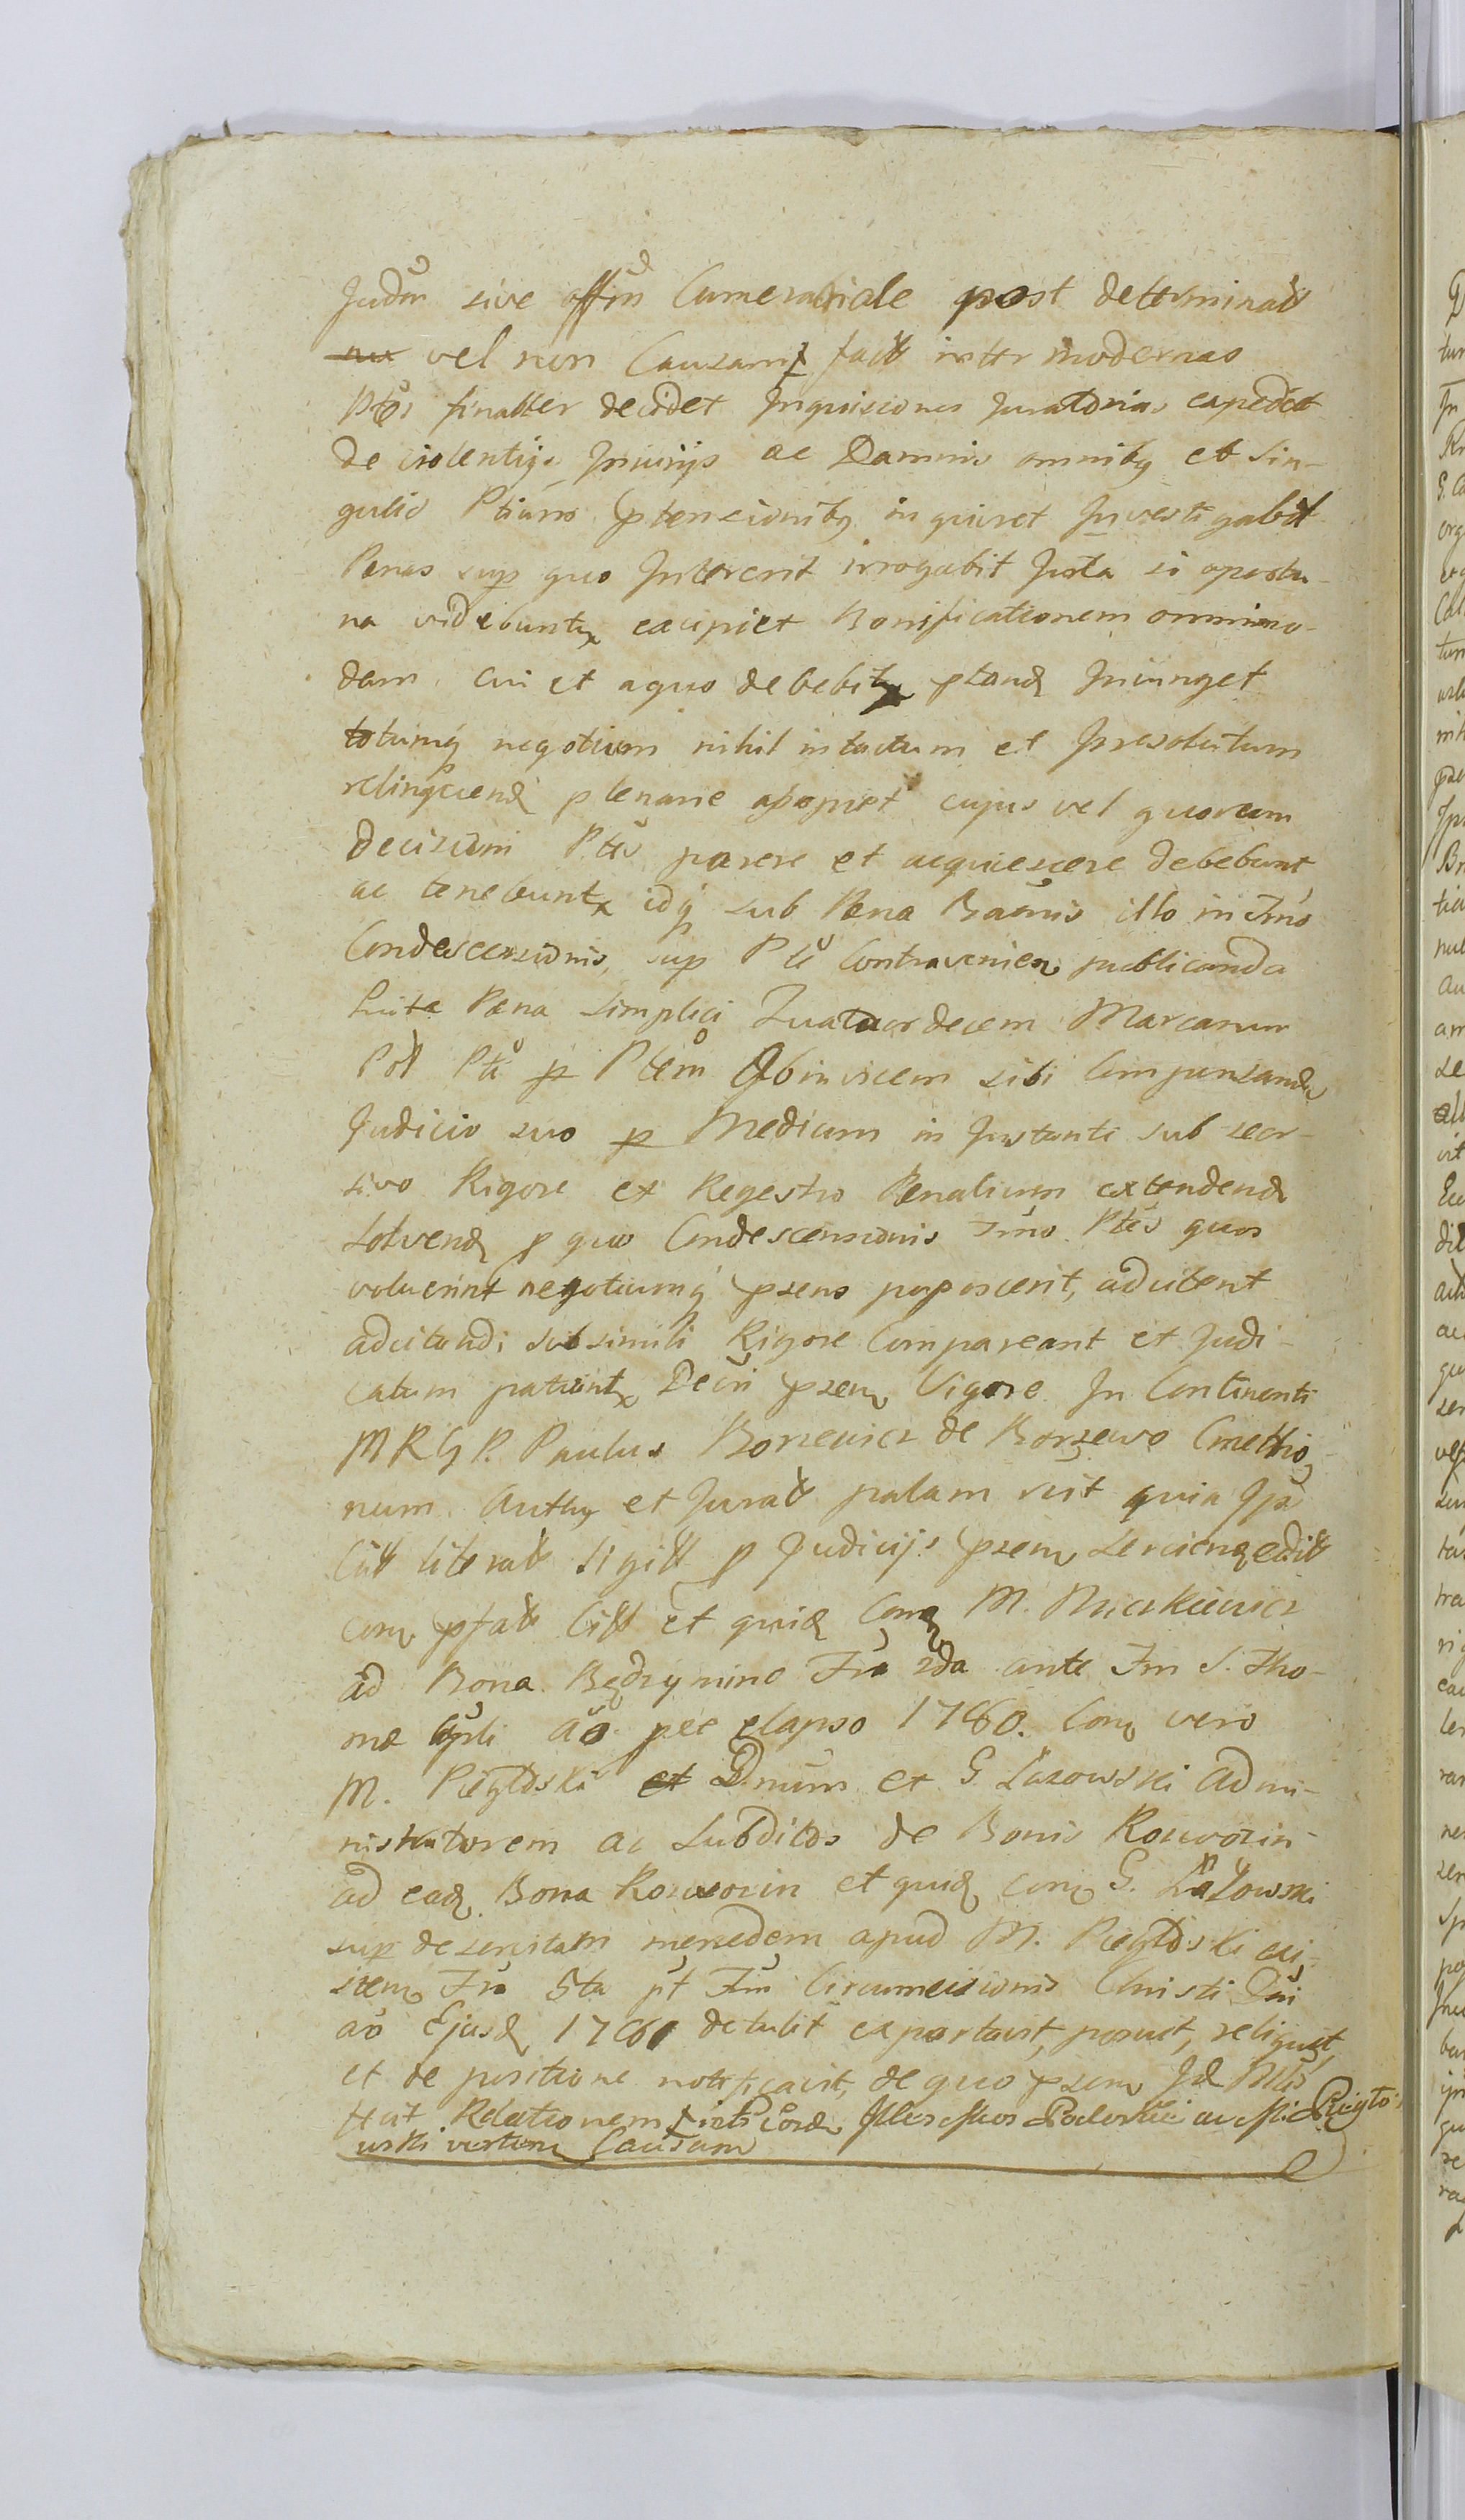 Judm sive offm Cameratiale post determinatt
vel non Causamq factt inter modernas
Ptes finalter decidet Inquisiones Juratorias expediet
de violentijs Injurijs ac Damnis omnibq et Sin-
gulis Ptium ptensionibq inquiret Investigabit
Penas sup quo Intererit irrogabit Juxta si oportu-
na videbuntx excipiet Bonificationem omnimo-
dam cui et aquo debebitx ptand Injunget
totumq negotium nihil intactum et Irresolutum
relinquend plenarie aponet cujus vel quorum
decisioni Pts parere et acquiescere debebunt
ac tenebuntx idq sub Pena Bannis illo in Tmo
Condescensionis, sup Pte Contravenien publicanda
Luita Pena simplici Quatuordecem Marcarum
Pol Pte p Ptem Abinvicem sibi Compensanda
Judicio suo p Medium in Instanti sub secr-
sivo Rigore ex Regestro Penalium extendend
solvend p quo Condescensionis Tmo Ptes quos
voluerint negotiumq psens poposcerit, adcitent
adcitandi sub simili Rigore Compareant et Judi-
catum patiuntx Decri psen Vigore In Continenti
M R G P. Paulus Borzewicz de Borzewo Cmethio-
num Authq et Juratt palam vit quia Ipse
Citt literatt sigill p Judicijs psenq serviend edit
conq pfatt Citt et quid Conq M. Ruczkiewicz
ad Bona Będzymino Fra 2da ante Fm S. Tho-
mæ Apli Ao pee elapso 1760. Conq vero
M. Pieglowski Dnum et G. Lazowski Admi-
nistratorem ac Subditos de Bonis Rozwozin
ad ead Bona Rozwozin et quid conq G. Lazowski
sup deservitam mercedem apud M. Pieglowski exi-
stenq Fra 5ta pt Fm Circumcisionis Christi Dni
ao Ejusd 1761 detulit exportavit, posuit, reliquit
et de positione notificavit, de quo psenq Jd Mtris
ttut Relationem
Causam